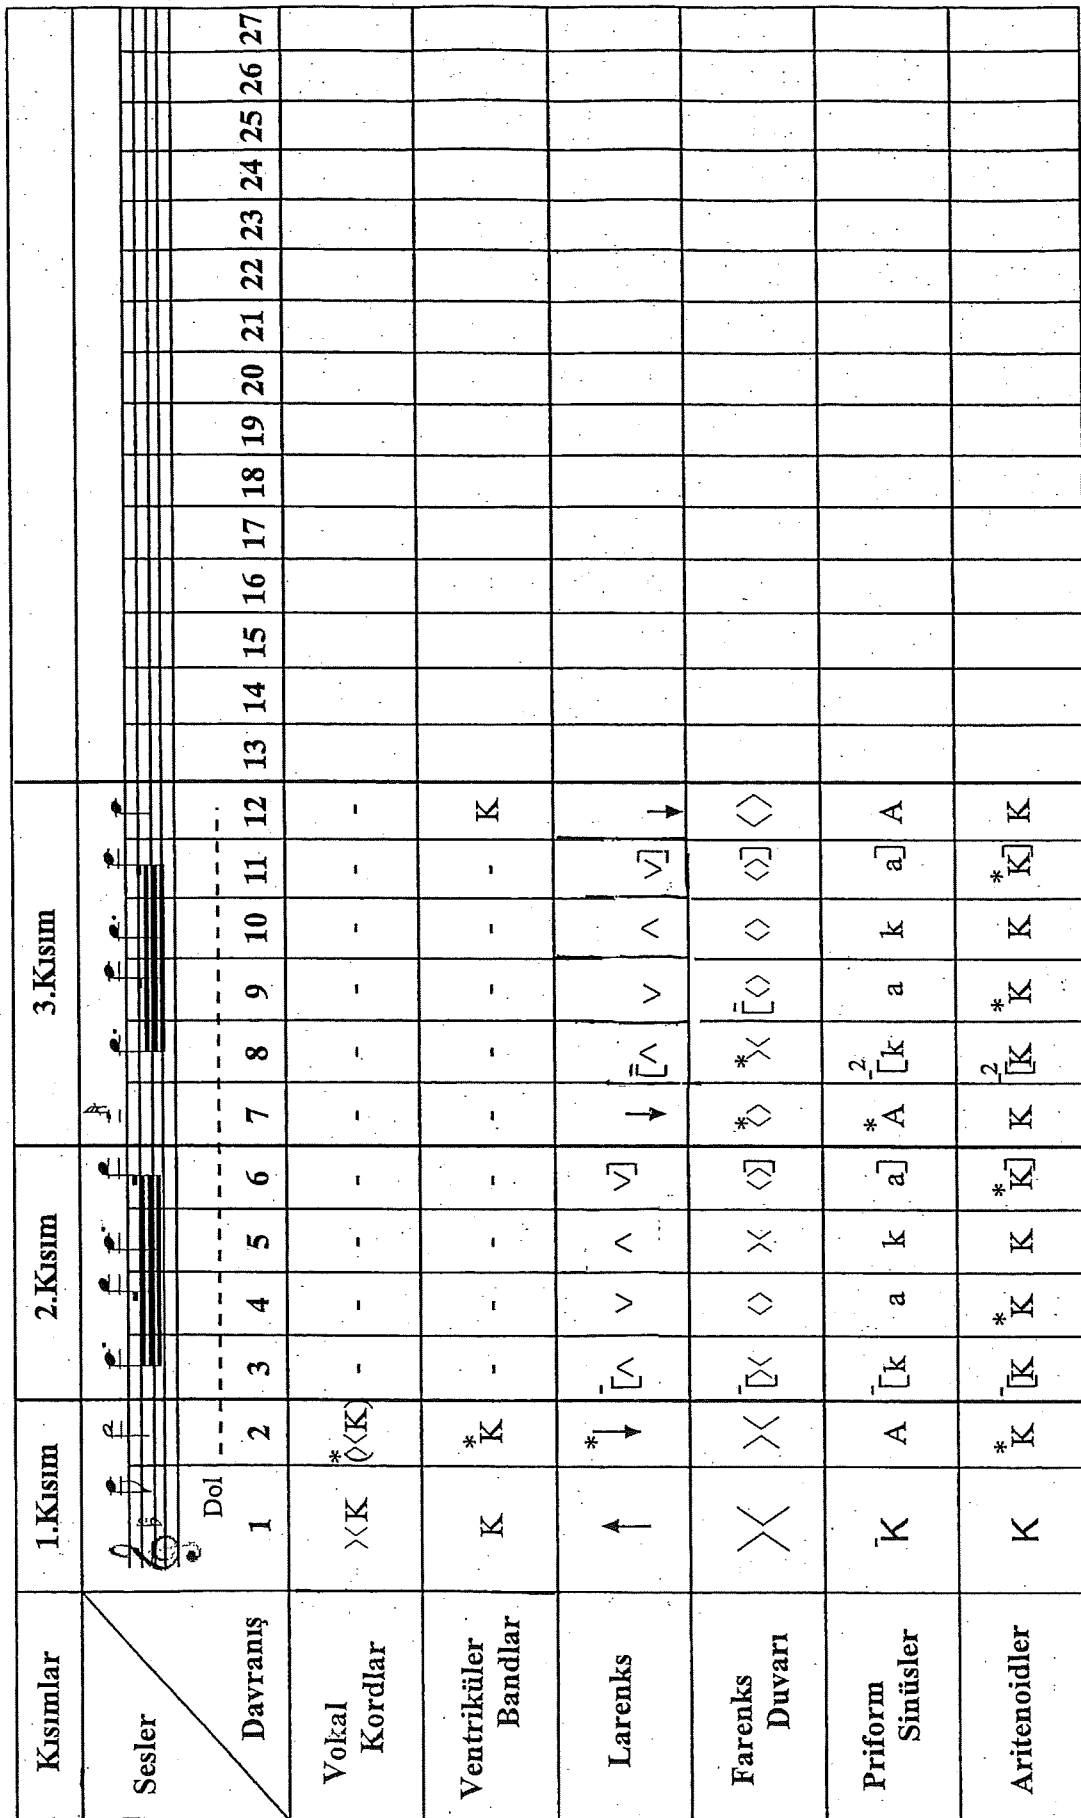 Kısımlar 1.Kısım 2.Kısım 3.Kısım
Sesler
Dol
Davranış 1 2 3 4 5 6 7 8 9 10 11 12 13 14 15 16 17 18 19 20 21 22 23 24 25 26 27
Vokal Kordlar ><K *(><K) - - - - - - - - - -
Ventriküler Bandlar K *K - - - - - - - - - K
Larenks ↑ *↓ ¯[∧ ∨ ∧ ∨] ↓ ¯[∧ ∨ ∧ ∨] ↓
Farenks Duvarı >< >< ¯[>< <> >< <>] *<> *>< ¯[<> <> <>] <>
Priform Sinüsler ¯K A ¯[k a k a] *A ¯2[k a k a] A
Aritenoidler K *K ¯[K *K K *K] K ¯2[K *K K *K] K